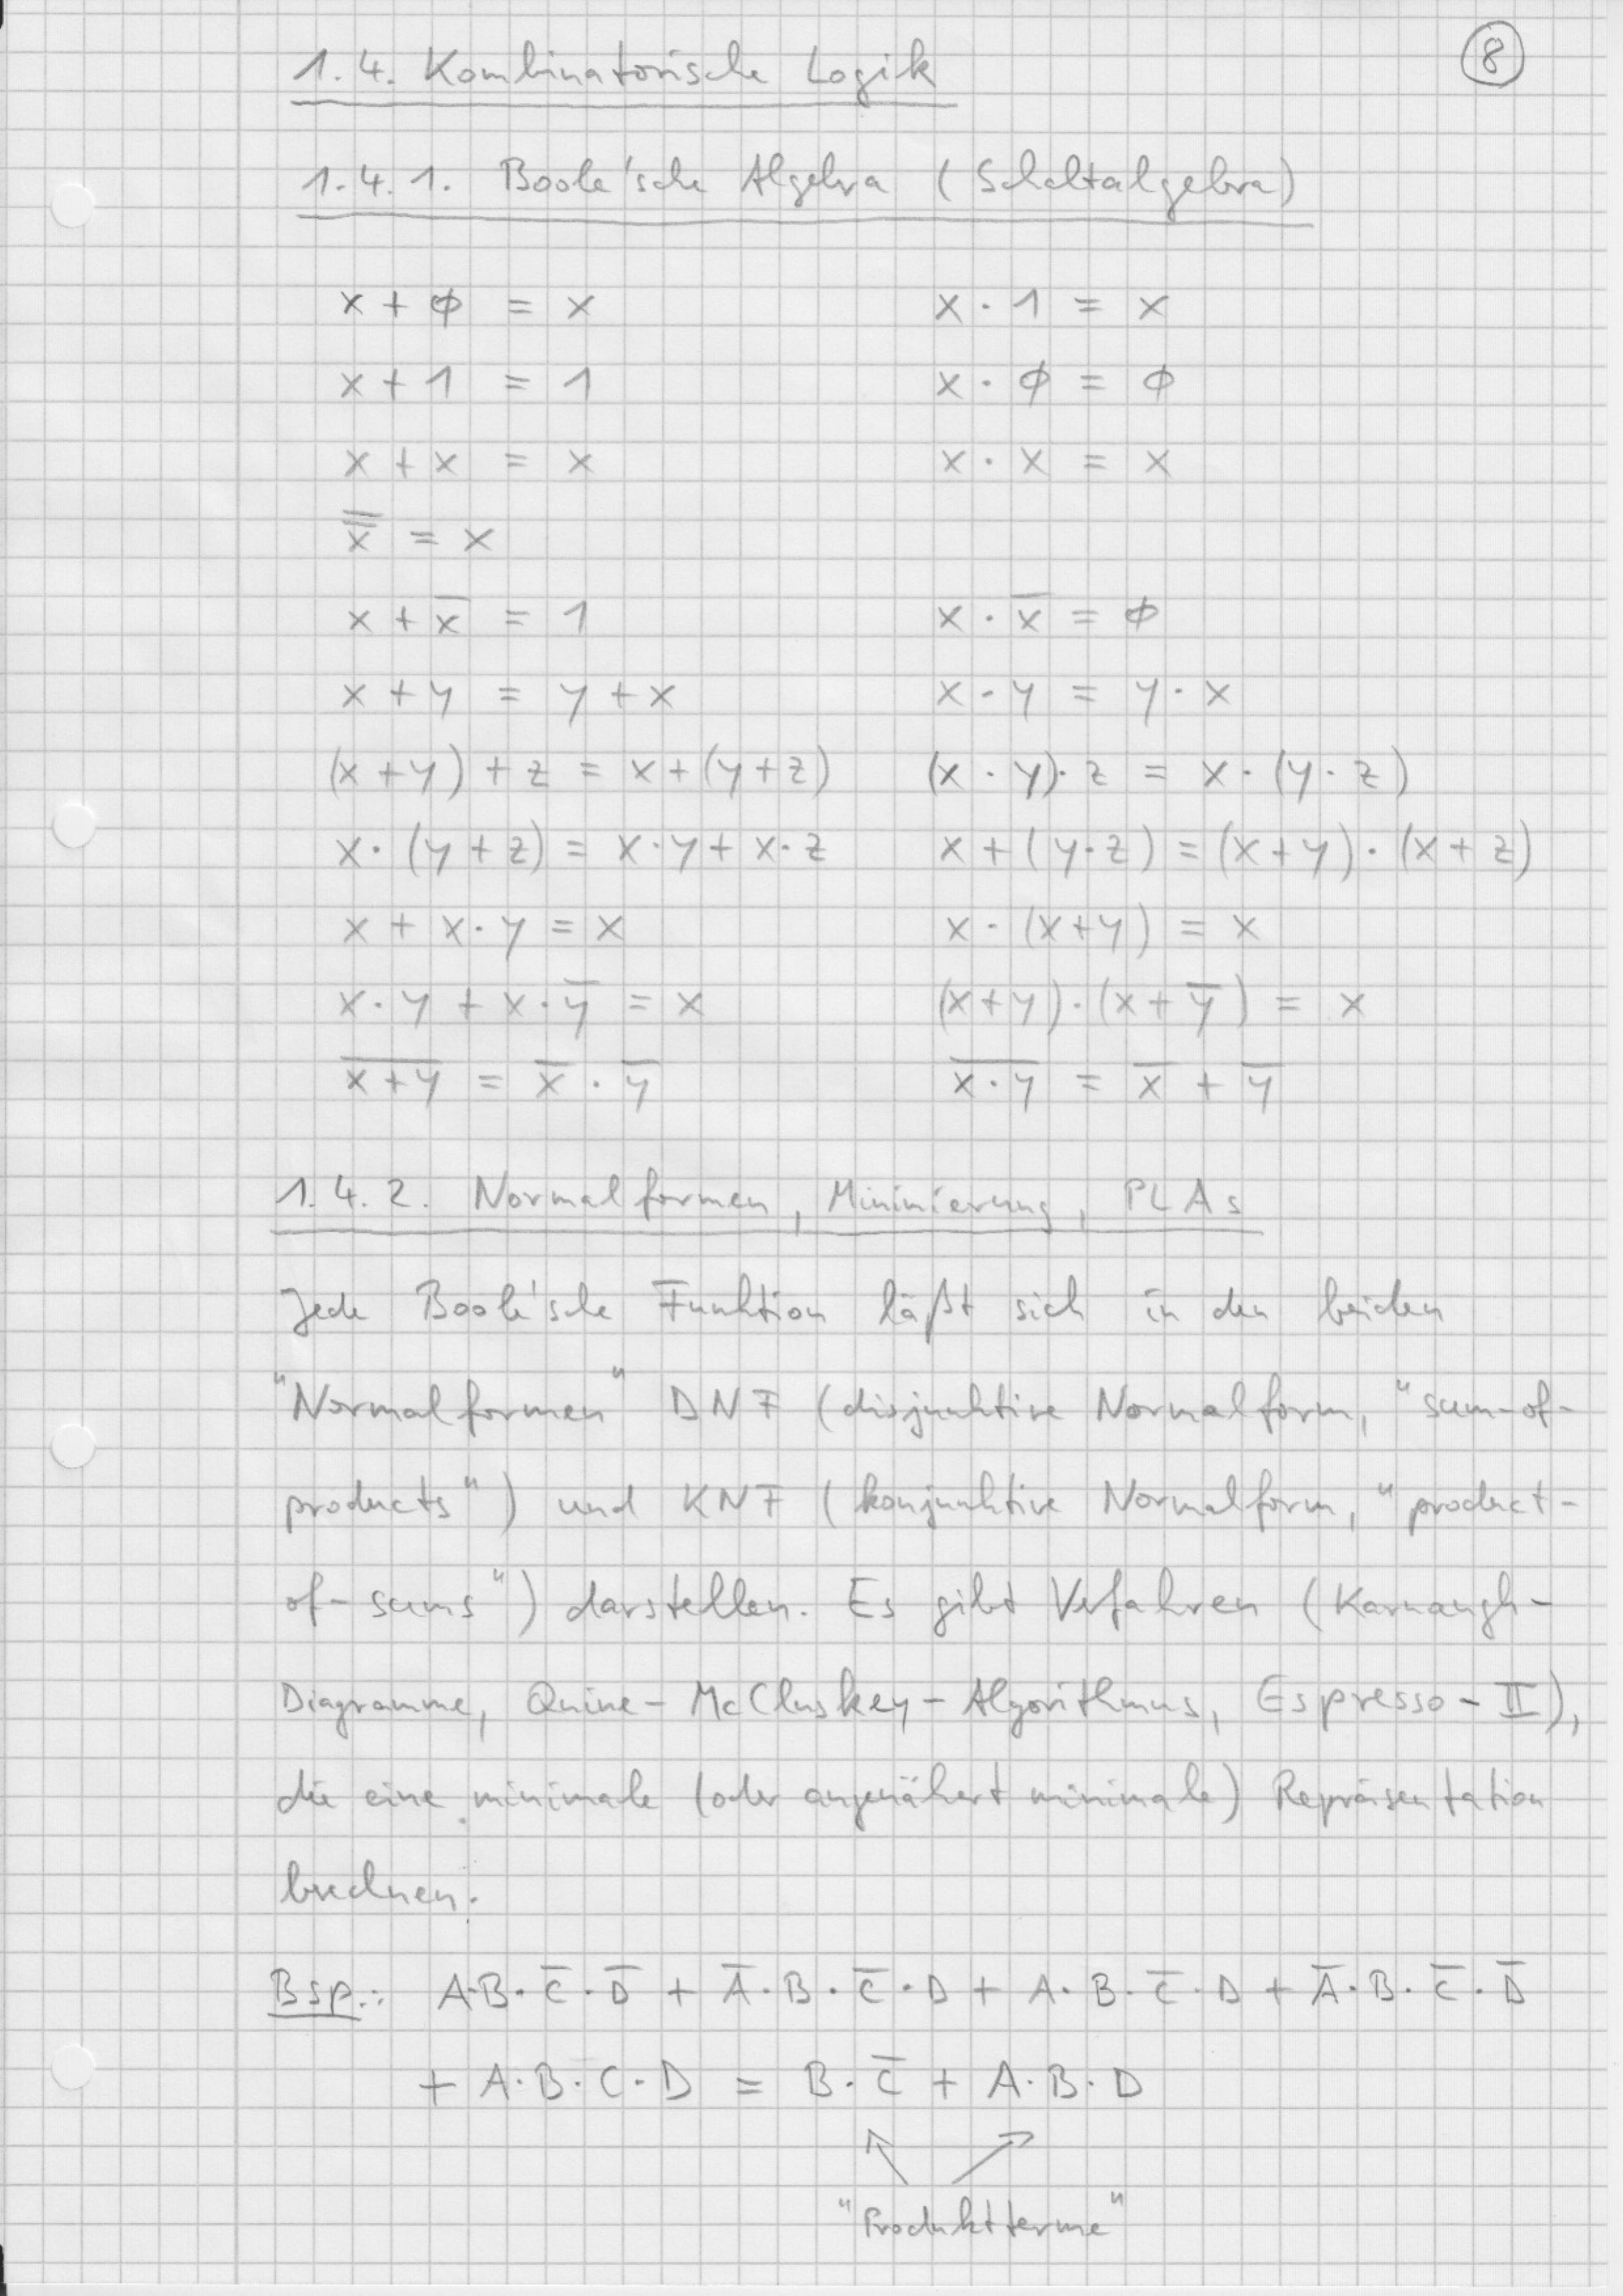 8
1.4. Kombinatorische Logik
1.4.1. Boole'sche Algebra (Schaltalgebra)
x + ϕ = x    x · 1 = x
x + 1 = 1    x · ϕ = ϕ
x + x = x    x · x = x
x̿ = x
x + x̅ = 1    x · x̅ = ϕ
x + y = y + x    x · y = y · x
(x + y) + z = x + (y + z)    (x · y) · z = x · (y · z)
x · (y + z) = x · y + x · z    x + (y · z) = (x + y) · (x + z)
x + x · y = x    x · (x + y) = x
x · y + x · y̅ = x    (x + y) · (x + y̅) = x
x̅+̅y̅ = x̅ · y̅    x̅·̅y̅ = x̅ + y̅
1.4.2. Normalformen, Minimierung, PLAs
Jede Boole'sche Funktion läßt sich in den beiden
"Normalformen" DNF (disjunktive Normalform, "sum-of-
products") und KNF (konjunktive Normalform, "product-
of-sums") darstellen. Es gibt Verfahren (Karnaugh-
Diagramme, Quine-McCluskey-Algorithmus, Espresso-II),
die eine minimale (oder angenähert minimale) Repräsentation
berechnen.
Bsp.: A·B·C̅·D̅ + A̅·B·C̅·D + A·B·C̅·D + A̅·B·C̅·D̅
+ A·B·C·D = B·C̅ + A·B·D
"Produktterme"